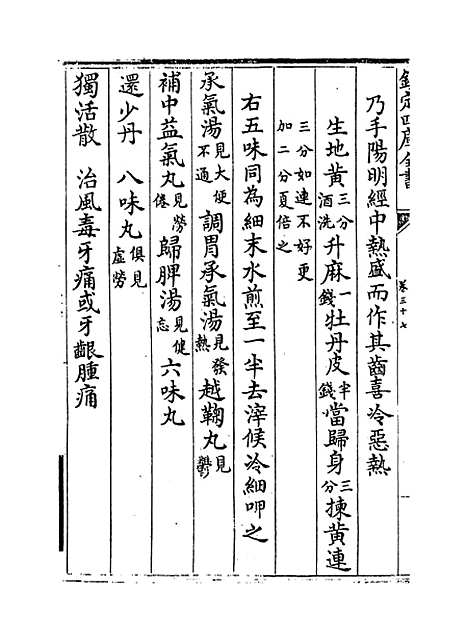 欽定四庫全書
卷三十七
乃手陽明經中熱盛而作其齒喜冷惡熱
生地黃三分酒洗升麻一錢牡丹皮半錢當歸身三分揀黃連
三分如連不好更加二分夏倍之
右五味同為細末水煎至一半去滓候冷細呷之
承氣湯見大便不通調胃承氣湯見發熱越鞠丸見鬱
補中益氣丸見勞倦歸脾湯見健忘六味丸
還少丹 八味丸俱見虛勞
獨活散 治風毒牙痛或牙齦腫痛